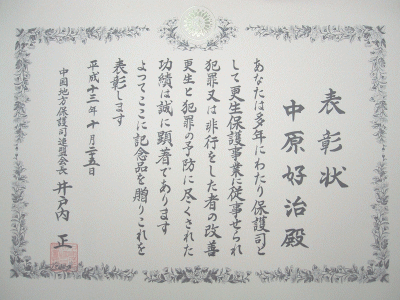 表彰状
中原好治殿
あなたは多年にわたり保護司と
して更生保護事業に従事せられ
犯罪又は非行をした者の改善
更生と犯罪の予防に尽くされた
功績は誠に顕著であります
よってここに記念品を贈りこれを
表彰します
平成十三年十月二五日
中国地方保護司連盟会長 井戸内 正